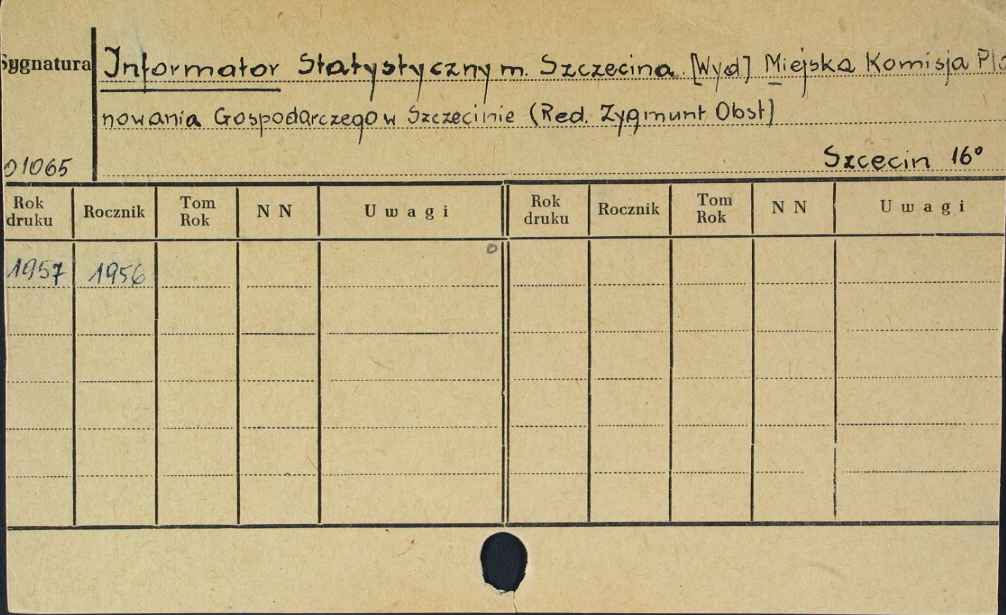 Sygnatura Informator Statystyczny m. Szczecina. [Wyd] Miejska Komisja Pla
nowania Gospodarczego w Szczecinie (Red. Zygmunt Obst)
01065 Szcecin 16°
Rok druku Rocznik Tom Rok N N Uwagi Rok druku Rocznik Tom Rok N N Uwagi
1957 1956